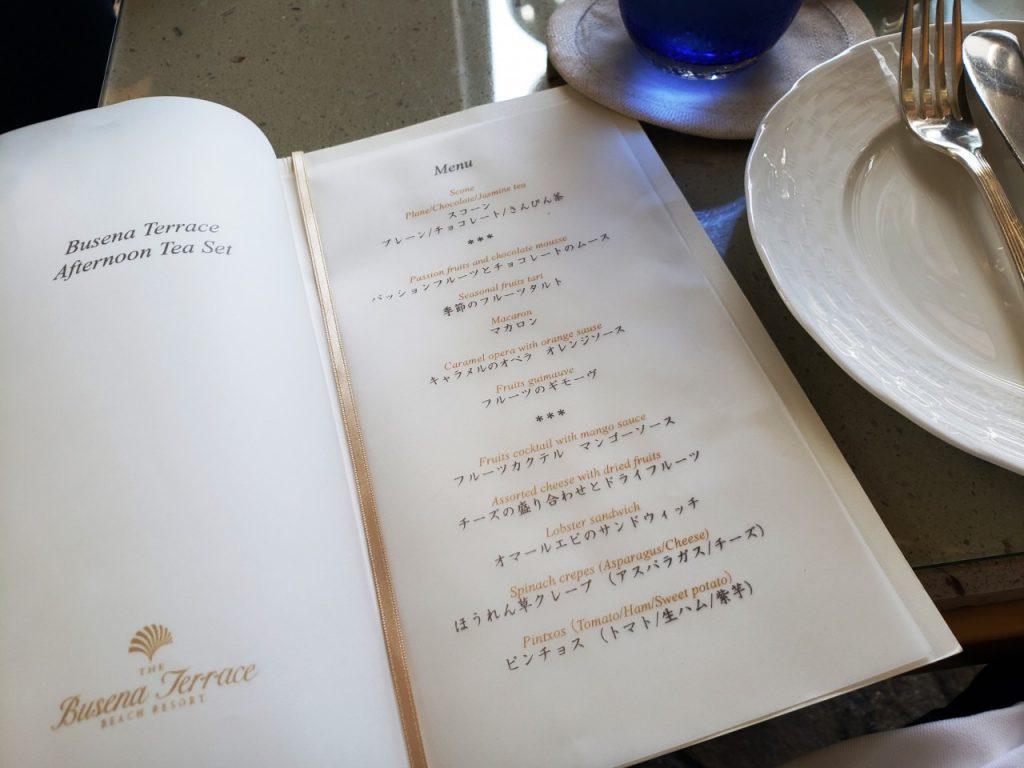 Busena Terrace
Afternoon Tea Set
THE
Busena Terrace
BEACH RESORT
Menu
Scone
Plane/Chocolate/Jasmine tea
スコーン
プレーン/チョコレート/さんぴん茶
***
Passion fruits and chocolate mousse
パッションフルーツとチョコレートのムース
Seasonal fruits tart
季節のフルーツタルト
Macaron
マカロン
Caramel opera with orange sause
キャラメルのオペラ オレンジソース
Fruits guimauve
フルーツのギモーヴ
***
Fruits cocktail with mango sauce
フルーツカクテル マンゴーソース
Assorted cheese with dried fruits
チーズの盛り合わせとドライフルーツ
Lobster sandwich
オマールエビのサンドウィッチ
Spinach crepes (Asparagus/Cheese)
ほうれん草クレープ （アスパラガス/チーズ）
Pintxos（Tomato/Ham/Sweet potato）
ピンチョス （トマト/生ハム/紫芋）